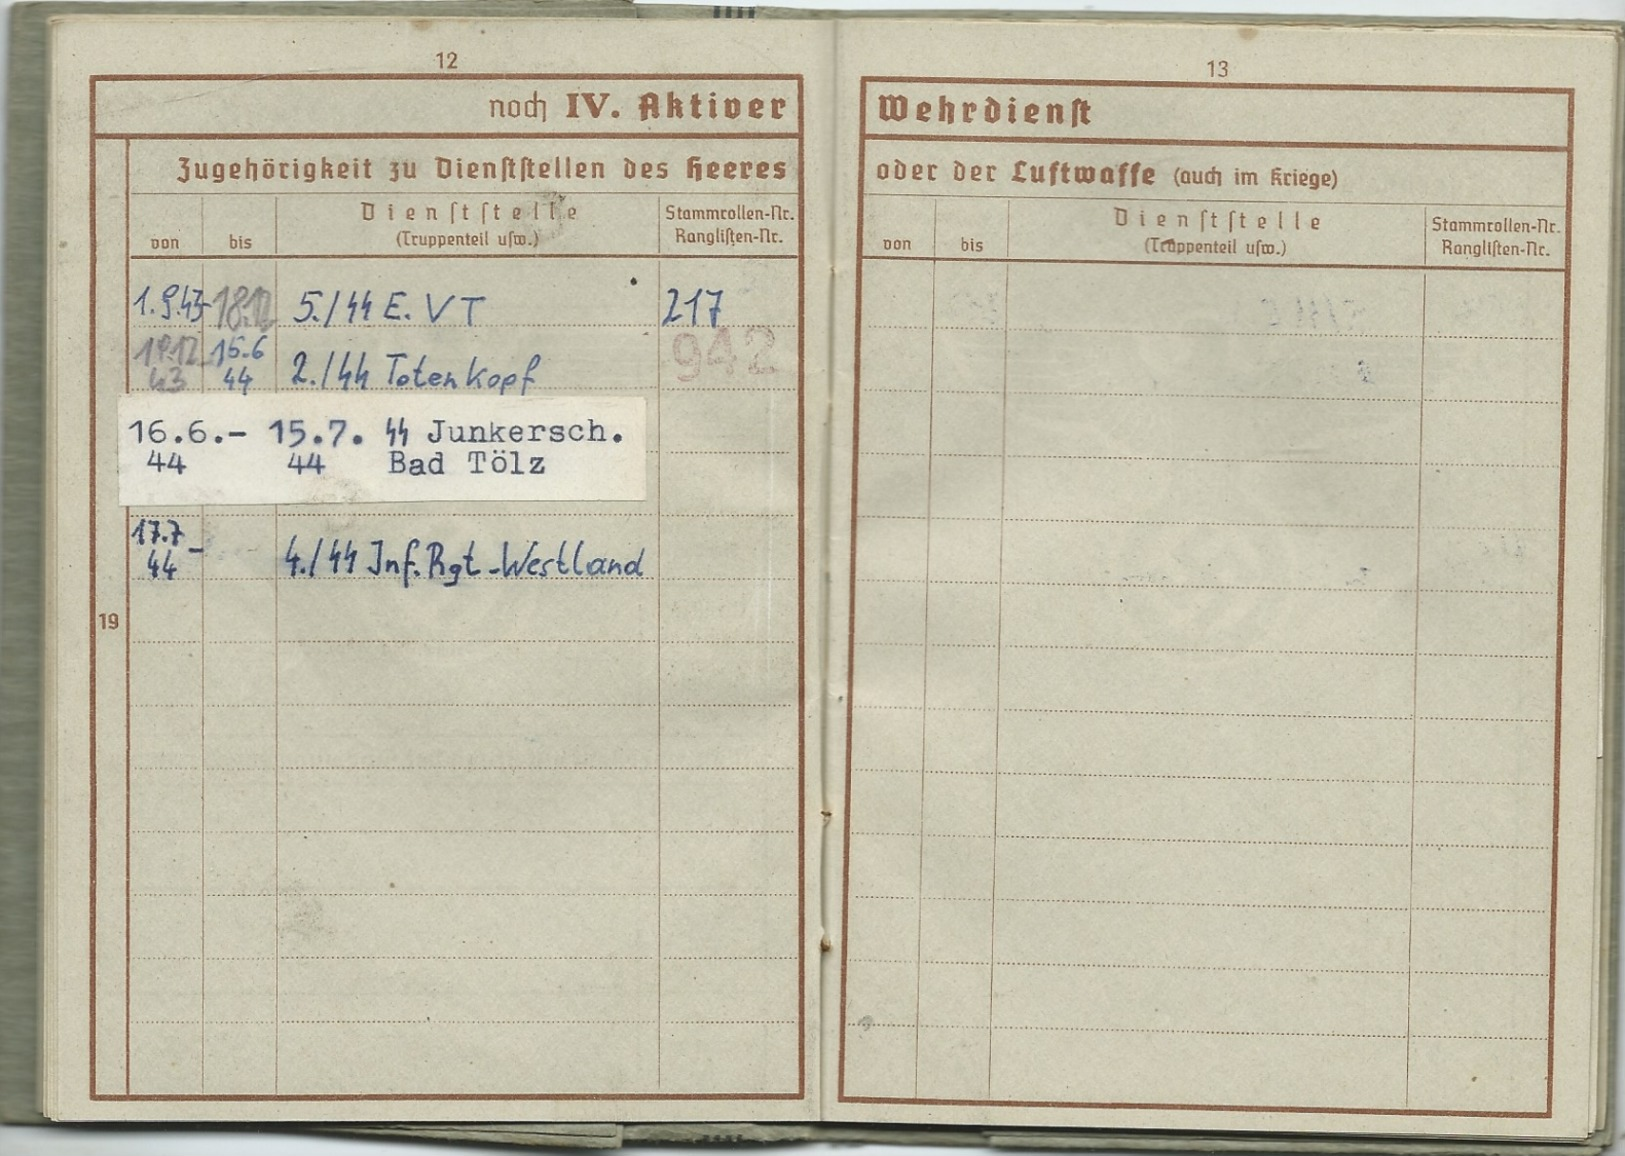 12
noch IV. Aktiver
Zugehörigkeit zu Dienststellen des Heeres
von
bis
Dienststelle
(Truppenteil usw.)
Stammrollen-Nr.
Ranglisten-Nr.
1.9.43-18.12 5./ᛋᛋ E. V T 217
19.12. 15.6
43 44 2./ᛋᛋ Totenkopf 942
16.6.- 15.7. ᛋᛋ Junkersch.
44 44 Bad Tölz
17.7 -
44 4./ᛋᛋ Inf. Rgt - Westland
19
13
Wehrdienst
oder der Luftwaffe (auch im Kriege)
von
bis
Dienststelle
(Truppenteil usw.)
Stammrollen-Nr.
Ranglisten-Nr.